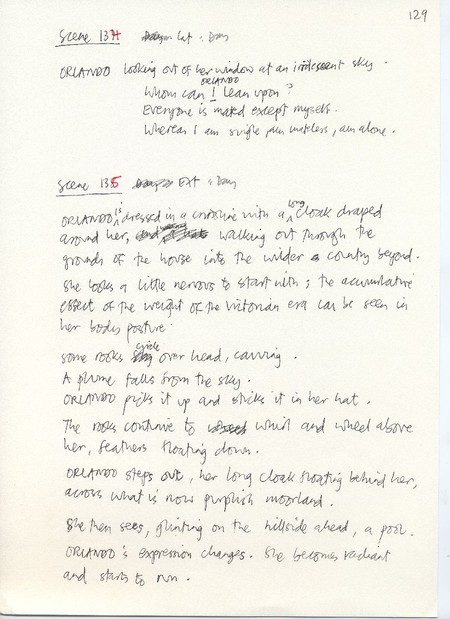 129
Scene 134 Int : Day
ORLANDO looking out of her window at an iridescent sky.
ORLANDO
Whom can I lean upon?
Everyone is mated except myself.
Whereas I am single, am mateless, am alone.
Scene 135 EXT : Day
ORLANDO is dressed in a crinoline with a long cloak draped
around her, walking out through the
grounds of the house into the wilder country beyond.
She looks a little nervous to start with; the accumulative
effect of the weight of the Victorian era can be seen in
her body posture.
Some rooks circle over head, cawing.
A plume falls from the sky.
ORLANDO picks it up and sticks it in her hat.
The rooks continue to whirl and wheel above
her, feathers floating down.
ORLANDO steps out, her long cloak floating behind her,
across what is now purplish moorland.
She then sees, glinting on the hillside ahead, a pool.
ORLANDO's expression changes. She becomes radiant
and starts to run.